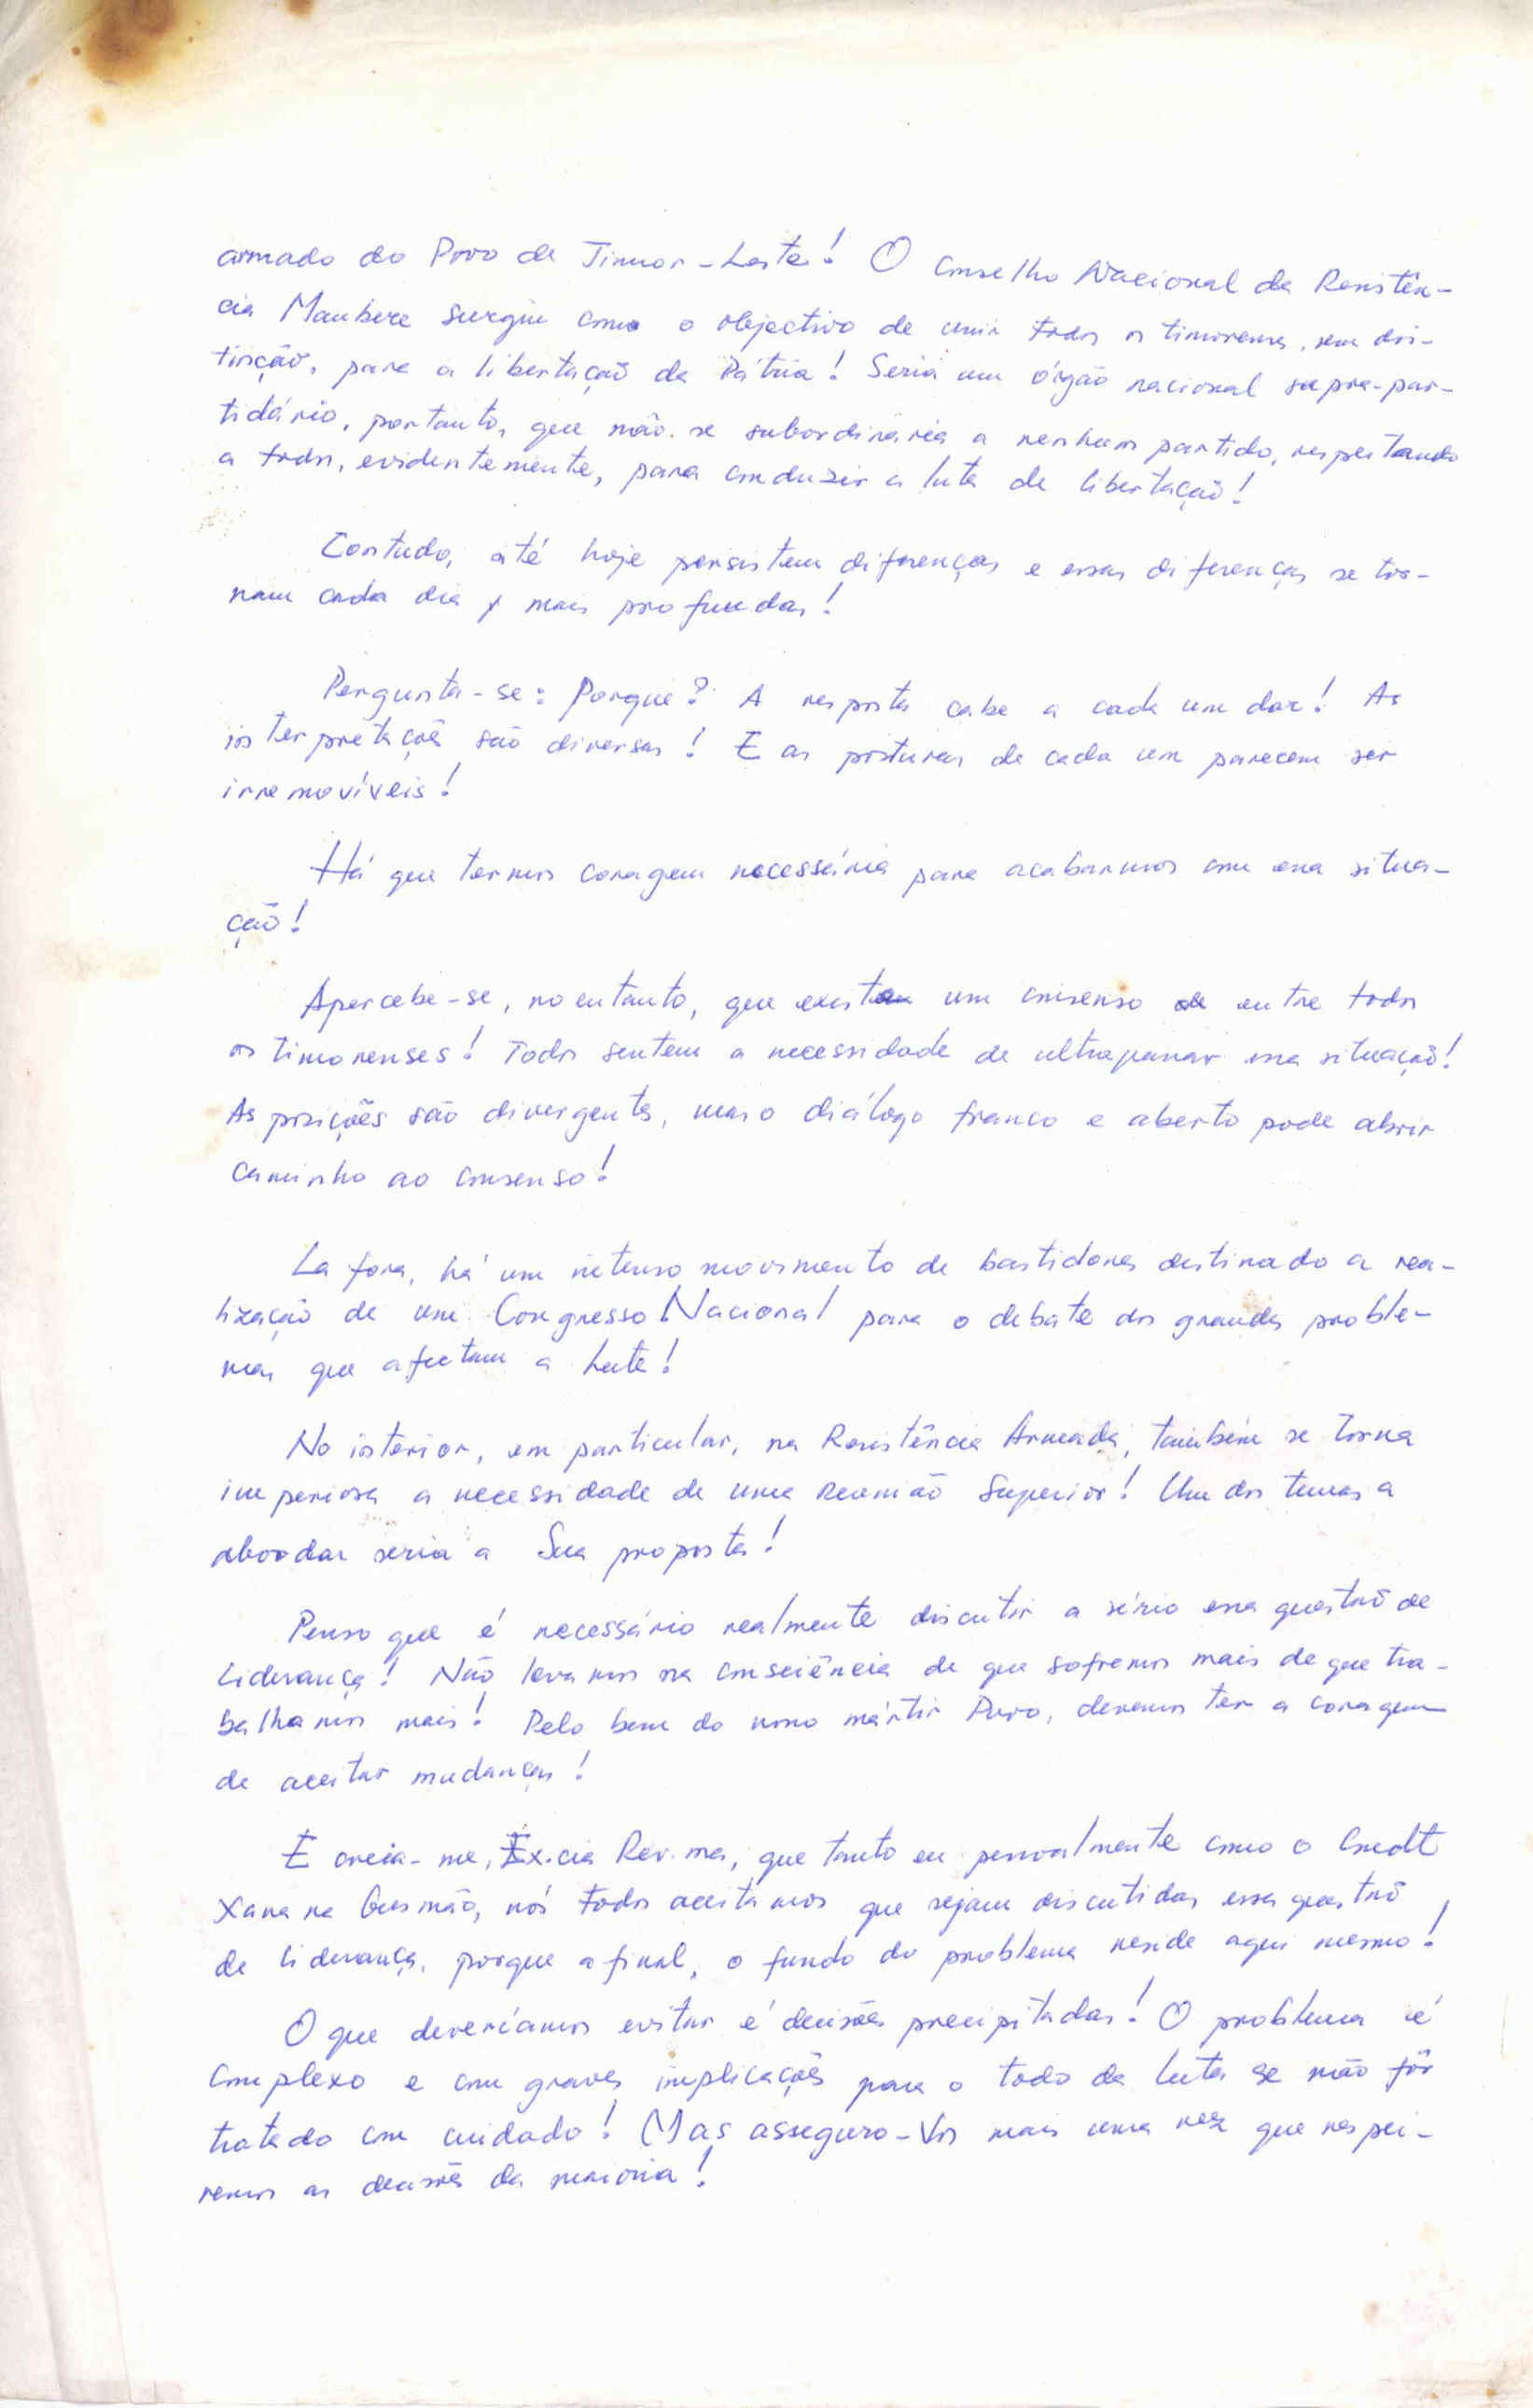 armado do Povo de Timor-Leste! O Conselho Nacional da Resistên-
cia Maubere surgiu como o objectivo de unir todos os timorenses, sem dis-
tinção, para a libertação da Pátria! Seria um órgão nacional supra-par-
tidário, portanto, que não se subordinaria a nenhum partido, respeitando
a todos, evidentemente, para conduzir a luta de libertação!
Contudo, até hoje persistem diferenças e essas diferenças se tor-
nam cada dia mais profundas!
Pergunta-se: Porque? A resposta cabe a cada um dar! As
interpretações são diversas! E as posturas de cada um parecem ser
irremovíveis!
Há que termos coragem necessária para acabarmos com essa situa-
ção!
Apercebe-se, no entanto, que existe um consenso de entre todos
os timorenses! Todos sentem a necessidade de ultrapassar essa situação!
As posições são divergentes, mas o diálogo franco e aberto pode abrir
caminho ao consenso!
La fora, há um intenso movimento de bastidores destinado a rea-
lização de um Congresso Nacional para o debate dos grandes proble-
mas que afectam a Luta!
No interior, em particular, na Resistência Armada, também se torna
imperiosa a necessidade de uma Reunião Superior! Um dos temas a
abordar seria a Sua proposta!
Penso que é necessário realmente discutir a sério essa questão de
Liderança! Não levamos na consciência de que sofremos mais de que tra-
balhamos mais! Pelo bem do nosso mártir Povo, devemos ter a coragem
de aceitar mudanças!
E creia-me, Ex.cia Rev.ma, que tanto eu pessoalmente como o Cmdt
Xanana Gusmão, nós todos aceitamos que sejam discutidas essa questão
de liderança, porque afinal, o fundo do problema reside aqui mesmo!
O que deveríamos evitar é decisões precipitadas! O problema é
complexo e com graves implicações para o todo da Luta se não fôr
tratado com cuidado! Mas asseguro-Vos mais uma vez que respei-
remos as decisões da maioria!